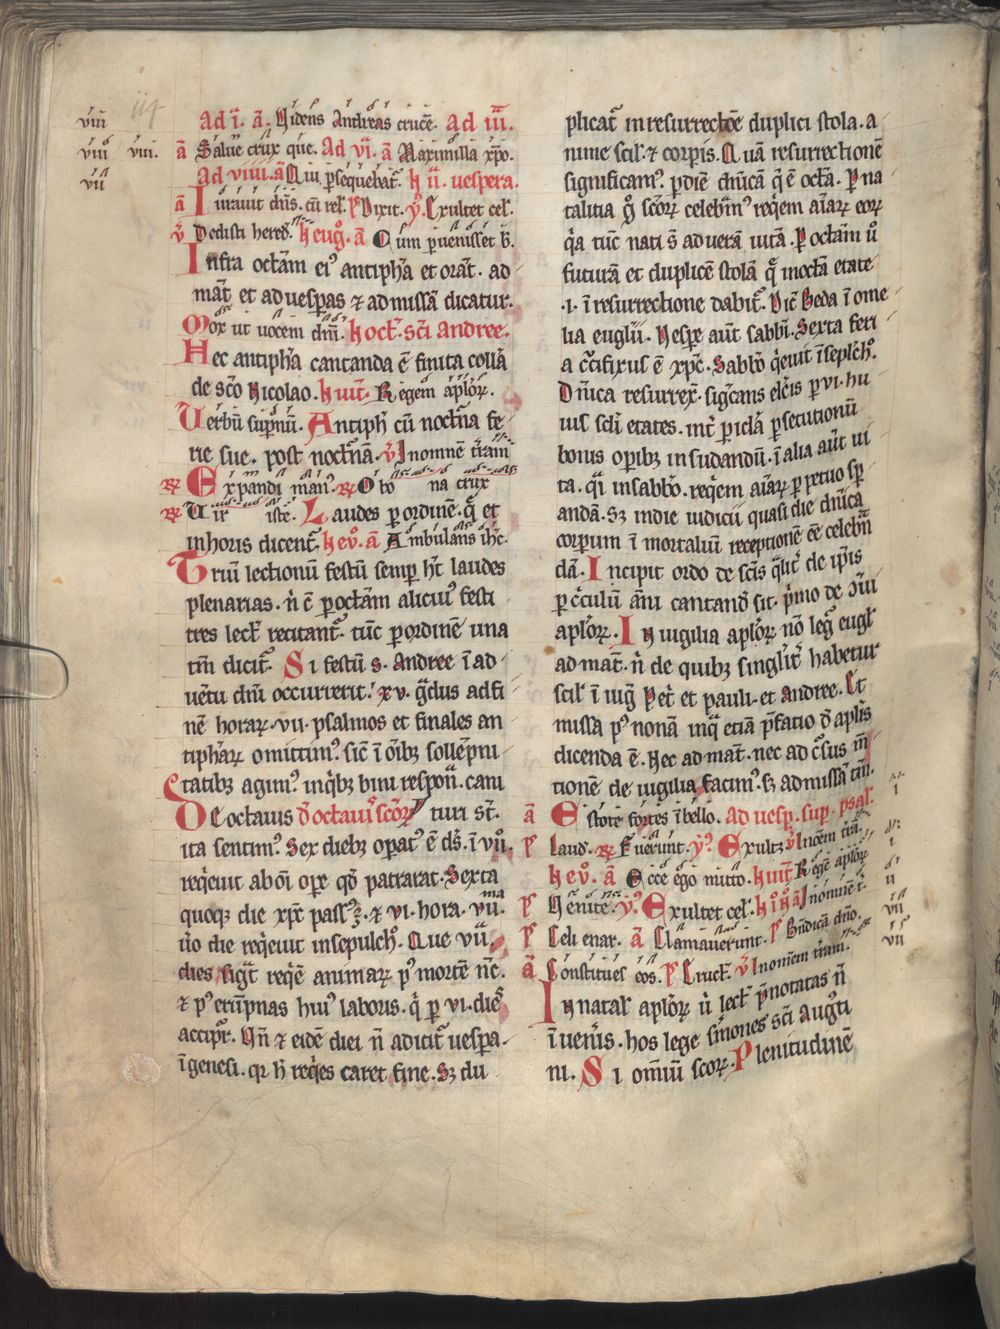 viii
viii viii.
vii
Ad i. ā. Uidens Andreas crucē. Ad iii.
ā Salue crux que. Ad vi. ā Maximilla xp̄o.
Ad viiii. ā Qui ꝑsequebat᷑. h ii. uespera.
ā Iurauit dn̄s. cū rel. p̄ Dixit. v̄. Exultet cel.
v̄ Dedisti hered᷑. h eug᷑. ā Cum ꝑuenisset b.
Infra octām eiꝰ antiph̄a et orat̄. ad
mat̄ et ad uesꝑas ⁊ ad missā dicatur.
Mox ut uocem dn̄i. h oct᷑. sc̄i andree.
Hec antiph̄a cantanda ē finita coll̄a
de sc̄o Nicolao. h uit᷑. Regem apl̄oꝝ.
Uerbū suꝑnū. Antiph̄ cū noct̄na fe
rie sue. post noct̄nā. v̄ In omnē t̄ram
℞ Expandi manꝰ. ℞ O bo na crux
℞ Uir iste. Laudes ꝑ ordinē. q̄ et
in horis dicent᷑. h ev̄. ā Ambulans ih̄c.
Triū lectionū festū semꝑ h̄t laudes
plenarias. n̄ ē ꝑ octām alicuiꝰ festi
tres lect᷑ recitant᷑. tūc ꝑ ordinē una
tm̄ dicit᷑. Si festū s. Andree ī ad
uētu dn̄i occurrerit. xv. g̊dus ad fi
nē horaꝝ. vii. psalmos et finales an
tiph̄aꝝ omittimꝰ. sic̄ ī oīb; sollēpni
tatib; agimꝰ. in qⁱb; bini respon̄. cani
De octauis d̄ octauis sc̄oꝝ turi st̄.
ita sentimꝰ. Sex dieb; oꝑatꝰ ē ds̄. ī vii.
req̄euit ab oī oꝑe qd̄ patrarat. Sexta
quoq; die xp̄c passꝰ ē. ⁊ vi. hora. vii.ma
u̓o die req̄euit in sepulch̊. Que vii.
dies sigt̄ req̄ē animaꝝ pꝰ mortē n̄c.
⁊ pꝰ erūpnas huiꝰ laboris. q̄ ꝑ vi. dies
accip̄r. Qn̄ ⁊ eidē diei n̄ adicit᷑ uesꝑa.
ī genesi. qꝛ h̄ req̄es caret fine. S; du
plicat᷑ in resurrectōe duplici stola. a
nime scil. ⁊ corꝑis. Quā resurrectionē
significamꝰ. ꝑ diē dn̄icā q̄ ē octā. ꝑ na
talitia g̊ sc̄oꝝ celeb̄mꝰ req̄em aīaꝝ eoꝝ
q̄a tūc nati s̄ ad uerā uitā. ꝑ octām u̓
futurā et duplicē stolā q̄ in octā etate
.i. ī resurrectione dabit᷑. Dic̄ Beda ī ome
lia eugl̄ii. Uesꝑe aūt sabb̄i. Sexta feri
a c̄cifixus ē xp̄c. Sabb̄o q̄euit ī sepl̄ch̊.
Dn̄ica resurrex̄. sigc̄ans elc̄is ꝑ vi. hu
ius scl̄i etates. int̄ ꝑicl̄a ꝑsecutionū
bonis oꝑib; in sudandū. ī alia aūt ui
ta. q̄i in sabb̄o. req̄em aīaꝝ ꝑ ꝑpetuo sꝑ
andā. S; in die iudicii quasi die dn̄ica
corꝑum ī mortaliū receptionē eē celeb̄n
dā. Incipit ordo de sc̄is q̄lit̄ de ip̄is
ꝑ c̄culū ani cantand̄ sit. p̄mo de oīu
apl̄oꝝ. In uigilia apl̄oꝝ nō leg̊ eugl̄
ad mat᷑. n̄ de quib; singlīt᷑ habetur
scil ī uig̊ Pet᷑ et pauli. et andree. Et
missa pꝰ nonā inq̄ etiā p̄fatio d̄ apl̄is
dicenda ē. Nec ad mat᷑. nec ad c̄sus m̄
tionē de uigilia facimꝰ. s; ad missā tm̄.
ā Estote fortes ī bello. Ad uesꝑ. suꝑ. psal.
p̄ Laud. ℞ Fuerunt. v̄. Exult; v̄ In oēm t̄ra.
h ev̄. ā Ecce ego mitto. h uit᷑ Regē apl̄oꝝ
p̄ Uenite. v̄. Exultet cel. h i ā In omnē t̄.
p̄ Celi enar. ā Clamauerunt. p̄ Bn̄dicā dn̄o.
ā Constitues eos. p̄ Eruct᷑. v̄ In omnem t̄ram.
In natal apl̄oꝝ u̓ lect᷑ p̄notatas n̄
īueni̓s. hos lege sm̄ones sc̄i Augꝰti
ni. Si omīū sc̄oꝝ. Plenitudinē
vii
vii